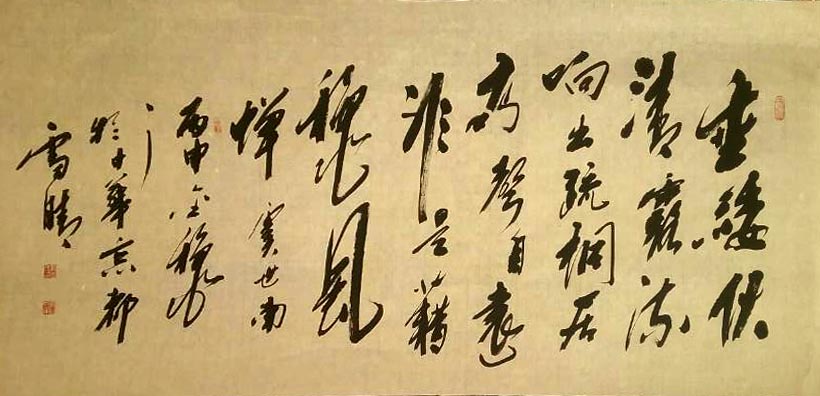 垂緌饮
清露流
响出疏桐居
高聲自遠
非是藉
秋風
蝉 虞世南
丙申金秋
於中華京都
雪晴